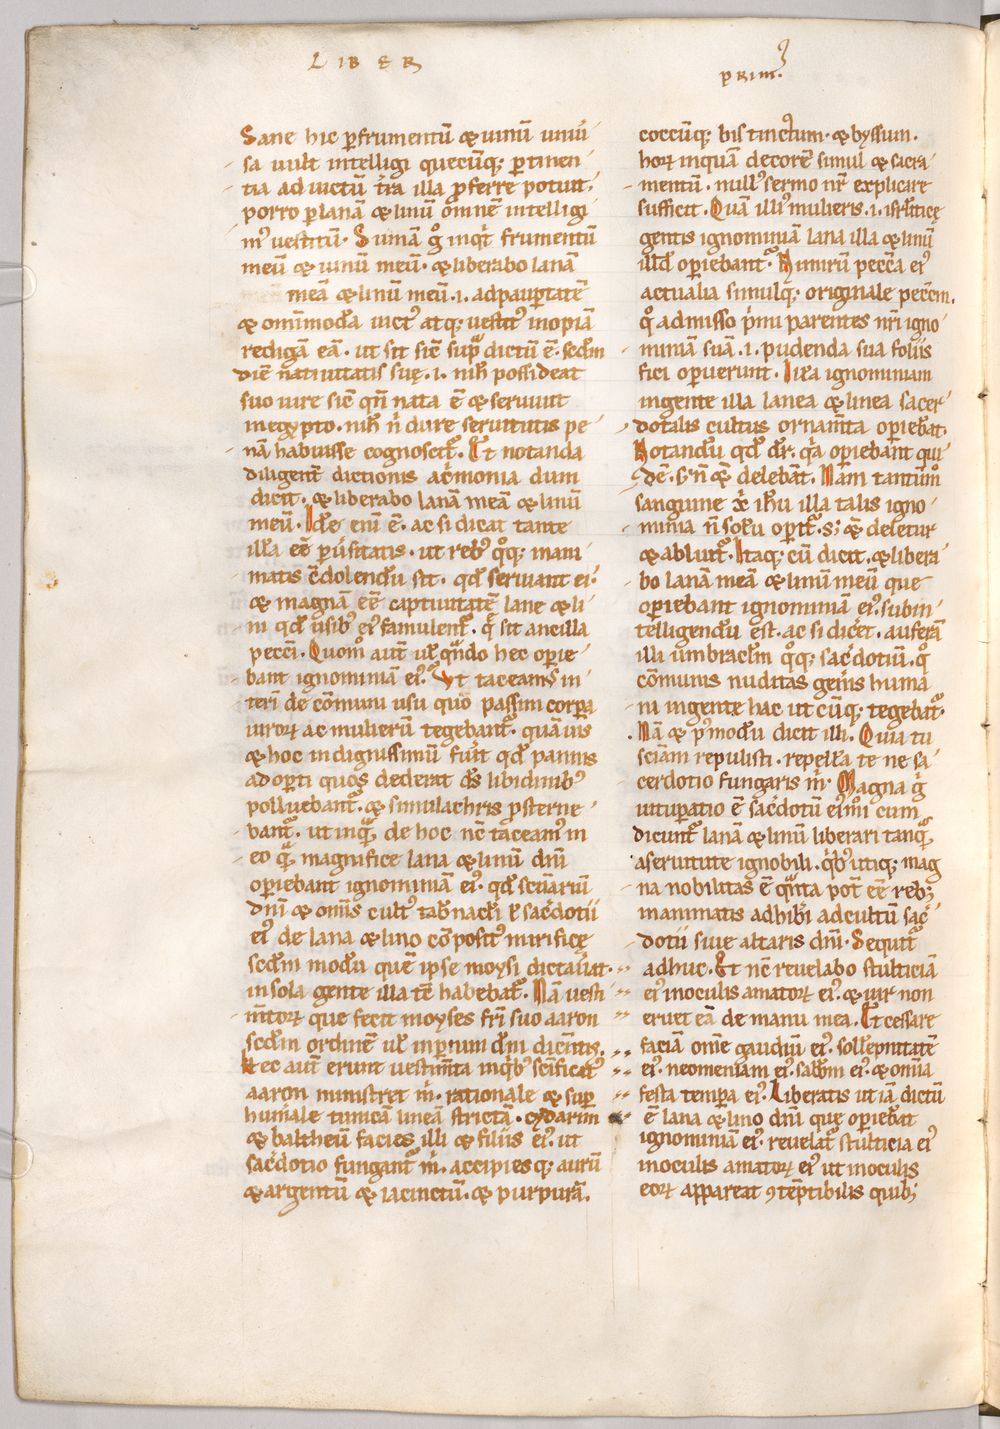 LIBER
PRIM᷒
Sane hic ꝑ frumentū & uinū uniu͛
sa uult intelligi quecūq; ꝑtinen
tia ad uictū t͛ra illa ꝓferre potuit.
porro ꝑ lanā & linū omnē intelligi
m᷒ uestitū. Sumā g̊ inqͥt frumentū
meū & uinū meū. & liberabo lanā
meā & linū meū .i. ad paup̱tatē
& omnimodā uict᷒ atq; uestit᷒ inopiā
redigā eā. ut sit sic̄ sup̱ dictū ē. scd̄m
diē natiuitatis suę .i. nih̄ possideat
suo iure sic̄ qn̄ nata ē & seruiuit
in egypto. nih̄ n̄ dure seruitutis pe
nā habuisse cognoscit᷑. Et notanda
diligent᷑ dictionis acͬmonia dum
dicit. & liberabo lanā meā & linū
meū. Idē enī ē. ac si dicat tante
illā eē ꝑu͛sitatis. ut reb᷒ qͦq; inani
matis c̄dolendū sit. qd̄ seruiant ei.
& magnā eē captiuitatē lane & li
ni qd̄ usib᷒ ei᷒ famulent᷑. q̄ sit ancilla
pecc̄i. Quom̊ aut̄ ul̄ qn̄do hec operie
bant ignominiā ei᷒. Ut taceam᷒ in
terī de cōmuni usu quo passim corꝑa
uiroꝝ ac mulierū tegebant᷑. quāuis
& hoc indignissimū fuit qd̄ pannis
adoꝑti quos dederat ds̄ libidinib᷒
polluebant᷑. & simulachris ꝓsterne
bant᷑. ut inquā de hoc nc̄ taceam᷒ in
eo qͣ magnifice lana & linū dnī
oꝑiebant ignominiā ei᷒. qd̄ sc̄uariū
dnī & omīs cult᷒ tab͛nacl̄i ul̄ sac͛dotii
ei᷒ de lana & lino cōposit᷒ mirificę
scd̄m modū quē ipse moysi dictau͛at.
in sola gente illa tc̄ habebat᷑. Nā uesti
m̄toꝝ que fecit moyses fr̄i suo aaron
scd̄m ordinē ul̄ inꝑium dn̄i dicentis.
Hec aut̄ erunt uestim̄ta inqͥb᷒ sc̄ificat᷒
aaron ministret m̄. rationale & suꝑ
humale tunicā lineā strictā. cydarim
& baltheū facies illi & filiis ei᷒. ut
sac͛dotio fungant᷑ m̄. accipiesq; aurū
& argentū & iacinctū. & purpurā.
coccūq; bis tinctum. & byssum.
hoꝝ inquā decorē simul & sacra
mentū. null᷒ sermo nr̄ explicare
sufficit. Quā illi᷒ mulieris .i. isrl̄itice
gentis ignominiā lana illa & linū
illd̄ oꝑiebant᷑. Nimirū pecc̄a ei᷒
actualia simulq; originale pecc̄m.
qͦ admisso pͥmi parentes nr̄i igno
miniā suā .i. pudenda sua foliis
fici oꝑuerunt. Itē ignominiam
ingente illa lanea & linea sacer
dotalis cultus ornam̄ta oꝑiebāt.
Notandū qd̄ dr̄. qͥa operiebant qui
dē. s; n̄ & delebāt. Nam tantumͦ
sanguine xp̄i ih̄u illa talis igno
minia n̄ solū oꝑit᷑. s; & deletur
& abluit᷑. Itaq; cū dicit. & libera
bo lanā meā & linū meū que
oꝑiebant ignominiā ei᷒. subin
telligendū est. ac si dicet. auferā
illi umbraclm̄ qͦq; sac͛dotiū. qͦ
cōmunis nuditas gen͛is humā
ni ingente hac utcūq; tegebat᷑.
Nā & p᷒modū dicit illi. Quia tu
sciam repulisti. repellā te ne sa
cerdotio fungaris m̄. Magna g̊
uituꝑatio ē sac͛dotū ei᷒m̊i cum
dicunt᷑ lanā & linū liberari tanqͣ
a seruitute ignobili. qͥb᷒ utiq; mag
na nobilitas ē quāta pot̄ eē reb;
inanimatis adhib͛i ad cultū sac͛
dotii siue altaris dn̄i. Sequit᷑
adhuc. Et nc̄ reuelabo stulticiā
ei᷒ in oculis amatoꝝ ei᷒. & uir non
eruet eā de manu mea. Et cessare
faciā omē gaudiū ei᷒. sollēpnitatē
ei᷒. neomeniam ei᷒. sabbm̄ ei᷒. & om̄ia
festa temꝑa ei᷒. Liberatis ut iā dictū
ē lana & lino dnī que oꝑiebāt
ignominiā ei᷒. reuelat᷑ stulticia ei᷒
in oculis amatoꝝ ei᷒ ut in oculis
eoꝝ appareat ꝯtēptibilis quib;